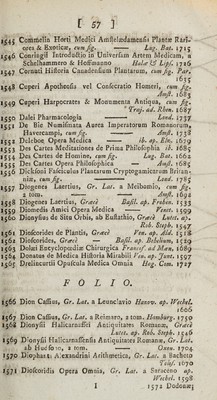 [ 57 ]
1545 Commelin Horti Medici Amstelædamensis Plantæ Rariores & Exoticæ, cum fig. — Lug. Bat. 1715
1546 Conringii Introductio in Universam Artem Medicam, a Schelhammero & Hoffmanno Halæ & Lips. 1726
1547 Cornuti Historia Canadensium Plantarum, cum fig. Par. 1635
1548 Cuperi Apotheosis vel Consecratio Homeri, cum fig. Amst. 1683
1549 Cuperi Harpocrates & Monumenta Antiqua, cum fig. Traj. ad Rhen. 1687
1550 Dalei Pharmacologia — Lond. 1737
1551 De Bie Numismata Aurea Imperatorum Romanorum, a Havercampi, cum fig. — Amst. 1738
1552 Deleboe Opera Medica — ib. ap. Elz. 1679
1553 Des Cartes Meditationes de Prima Philosophia ib. 1685
1554 Des Cartes de Homine, cum fig. Lug. Bat. 1662
1555 Des Cartes Opera Philosophica — Amst. 1685
1556 Dicksoni Fasciculus Plantarum Cryptogamicarum Britanniæ, cum fig. — Lond. 1785
1557 Diogenes Laertius, Gr. Lat. a Meibomio, cum fig. 2 tom. — Amst. 1692
1558 Diogenes Laertius, Græcè Basil. ap. Froben. 1533
1559 Diomedis Amici Opera Medica — Venet. 1599
1560 Dionysius de Situ Orbis, ab Eustathio, Græcè Lutet. ap. Rob. Steph. 1547
1561 Dioscorides de Plantis, Græcè Ven. ap. Ald. 1518
1562 Dioscorides, Græcè — Basil. ap. Bebelium, 1529
1563 Dolæi Encyclopædia Chirurgica Francof. ad Mæn. 1689
1564 Donatus de Medica Historia Mirabili Ven. ap. Junt. 1597
1565 Drelincurtii Opuscula Medica Omnia Hag. Com. 1727
FOLIO.
1566 Dion Cassius, Gr. Lat. a Leunclavio Hanov. ap. Wechel. 1606
1567 Dion Cassius, Gr. Lat. a Reimaro, 2 tom. Hamburg. 1750
1568 Dionysii Halicarnassei Antiquitates Romanæ, Græcè Lutet. ap. Rob. Steph. 1546
1569 Dionysii Halicarnassensis Antiquitates Romanæ, Gr. Lat. ab Hudsono, 2 tom. — Oxon. 1704
1570 Diophanti Alexandrini Arithmetica, Gr. Lat. a Bacheto Tolos. 1670
1571 Dioscoridis Opera Omnia, Gr. Lat. a Saraceno ap. Wechel. 1598
I
1572 Dodonæj